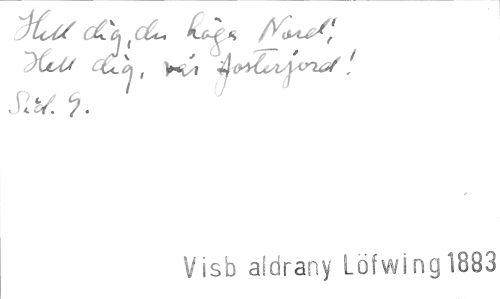 Hell dig, du höga Nord!
Hell dig, vår fosterjord!
Sid. 9.
Visb aldrany Löfwing 1883